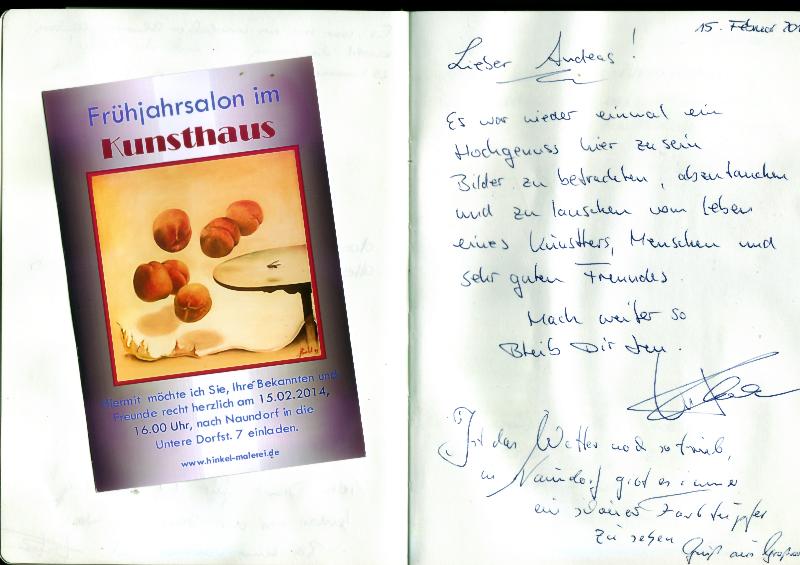 Frühjahrsalon im
Kunsthaus
Hiermit möchte ich Sie, Ihre Bekannten und
Freunde recht herzlich am 15.02.2014,
16.00 Uhr, nach Naundorf in die
Untere Dorfst. 7 einladen.
www.hinkel-malerei.de
15. Februar 201
Lieber Andreas!
Es war wieder einmal ein
Hochgenuss hier zu sein
Bilder zu betrachten, abzutauchen
und zu lauschen vom Leben
eines Künstlers, Menschen und
sehr guten Freundes.
Mach weiter so
Bleib Dir treu.
Ist das Wetter noch so trüb,
in Naundorf gibt es immer
ein schöner Farbtupfer
zu sehen
Gruß aus